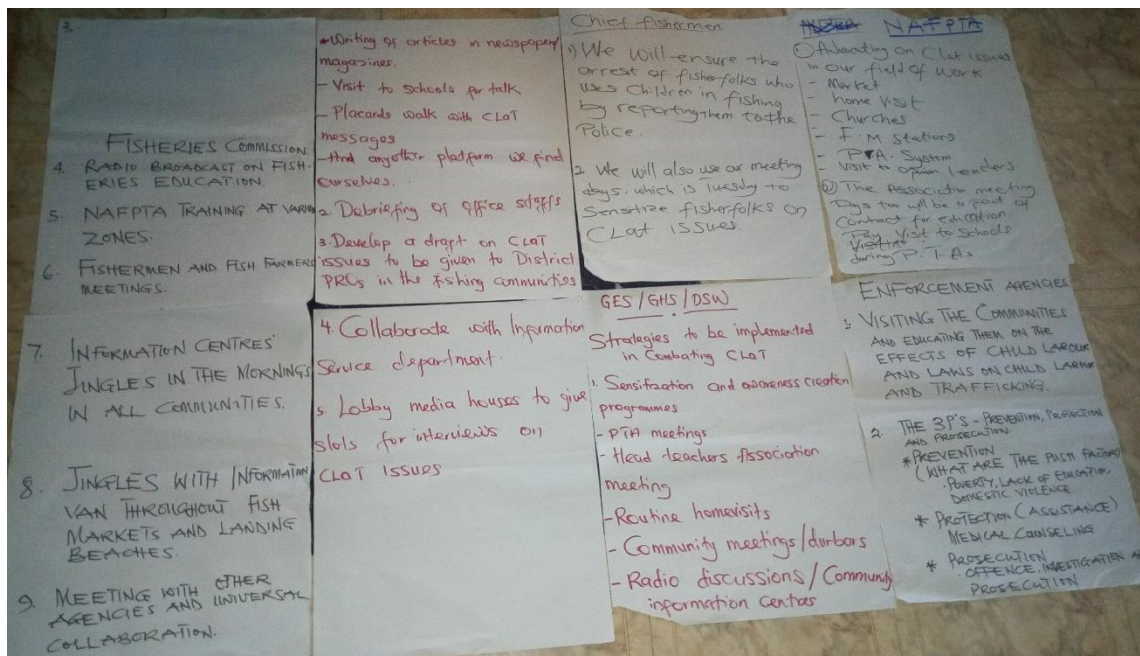 3.
FISHERIES COMMISSION
4. RADIO BROADCAST ON FISH-
ERIES EDUCATION.
5. NAFPTA TRAINING AT VARIOUS
ZONES.
6. FISHERMEN AND FISH FARMERS
MEETINGS.
7. INFORMATION CENTRES'
JINGLES IN THE MORNINGS
IN ALL COMMUNITIES.
8. JINGLES WITH INFORMATION
VAN THROUGHOUT FISH
MARKETS AND LANDING
BEACHES.
9. MEETING WITH OTHER
AGENCIES AND UNIVERSAL
COLLABORATION.
- Writing of articles in newspaper/
magazines.
- Visit to schools for talk
- Placards walk with CLaT
messages
- And anyother platform we find
ourselves.
2. Debriefing of office staffs
3. Develop a draft on CLaT
issues to be given to District
PROs in the fishing communities
4. Collaborate with Information
Service department.
5. Lobby media houses to give
slots for interviews on
CLaT ISSUES
Chief fishermen.
1) We will ensure the
arrest of fisherfolks who
uses Children in fishing
by reporting them to the
Police.
2. We will also use our meeting
days, which is Tuesday to
Sensitize fisherfolks on
CLat issues.
GES/GHS/DSW
Strategies to be implemented
in Combating CLaT
1. Sensitization and awareness creation
programmes
- PTA meetings
- Head teachers Association
meeting
- Routine homevisits
- Community meetings/durbars
- Radio discussions/Community
information Centres
NAFPTA
① Advocating on Clat issues
in our field of work
- Market
- home visit
- Churches
- F.M stations
- P.A. System
- Visit to opion leaders
② The Association meeting
Days too will be a point of
Contract for education
Pay Visit to Schools
during P.T.As
ENFORCEMENT AGENCIES
1. VISITING THE COMMUNITIES
AND EDUCATING THEM ON THE
EFFECTS OF CHILD LABOUR
AND LAWS ON CHILD LABOUR
AND TRAFFICKING.
2. THE 3P'S - PREVENTION, PROTECTION
AND PROSECUTION
* PREVENTION
(WHAT ARE THE PUSH FACTORS)
- POVERTY, LACK OF EDUCATION,
DOMESTIC VIOLENCE.
* PROTECTION (ASSISTANCE)
MEDICAL COUNSELING
* PROSECUTION
- OFFENCE, INVESTIGATION
PROSECUTION